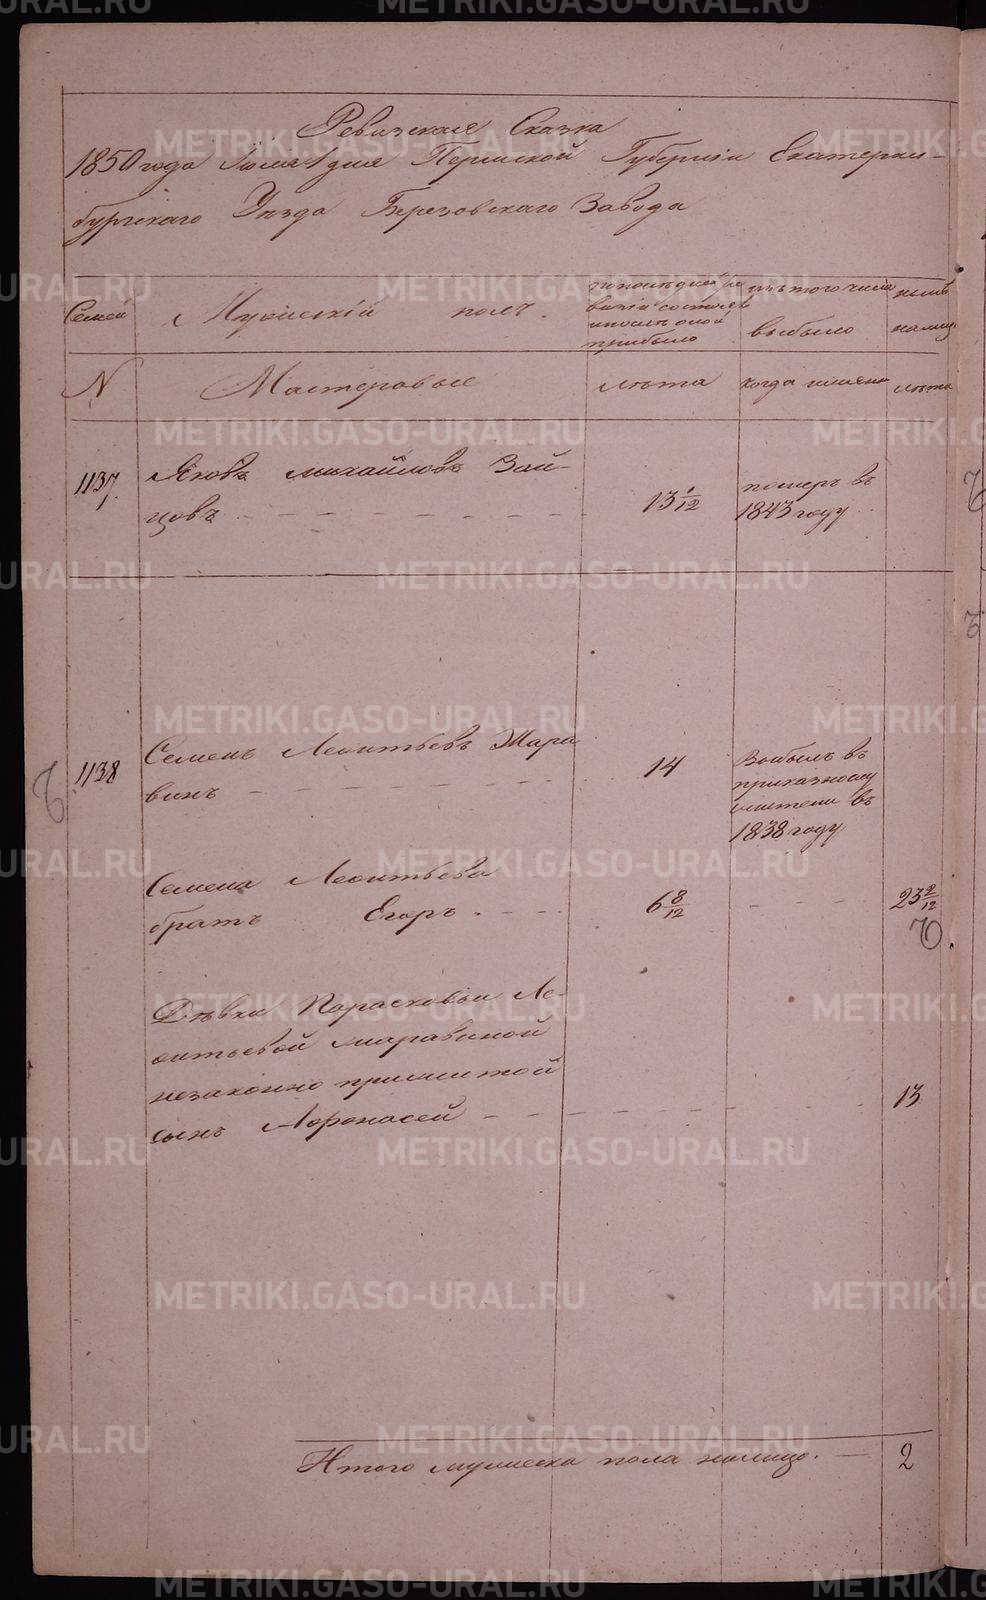 Ревизская Сказка
1850 года Июля 1 дня Пермской Губернии Екатерин-
бургскаго Уезда Березовскаго Завода
Семей
Мужескій полъ.
по последней ре
визіи состояло
и после оной
прибыло
изъ того числа
выбыло
ныне
на лицо
N
Мастеровые
лета
когда именно
лета
1137.
Яковъ Михайловъ Зай-
цовъ
13 1/12
померъ въ
1843 году
1138
Семенъ Леонтьевъ Жара
винъ
14
Выбылъ въ
приказному
въ
1838 году
Семена Леонтьева
братъ Егоръ.
6 8/12
23 2/12
Девки Парасковьи Ле-
онтьевой Жаравиной
незаконно прижитой
сынъ Афонасей
13
Итого мужеска пола налицо.
2
METRIKI.GASO-URAL.RU